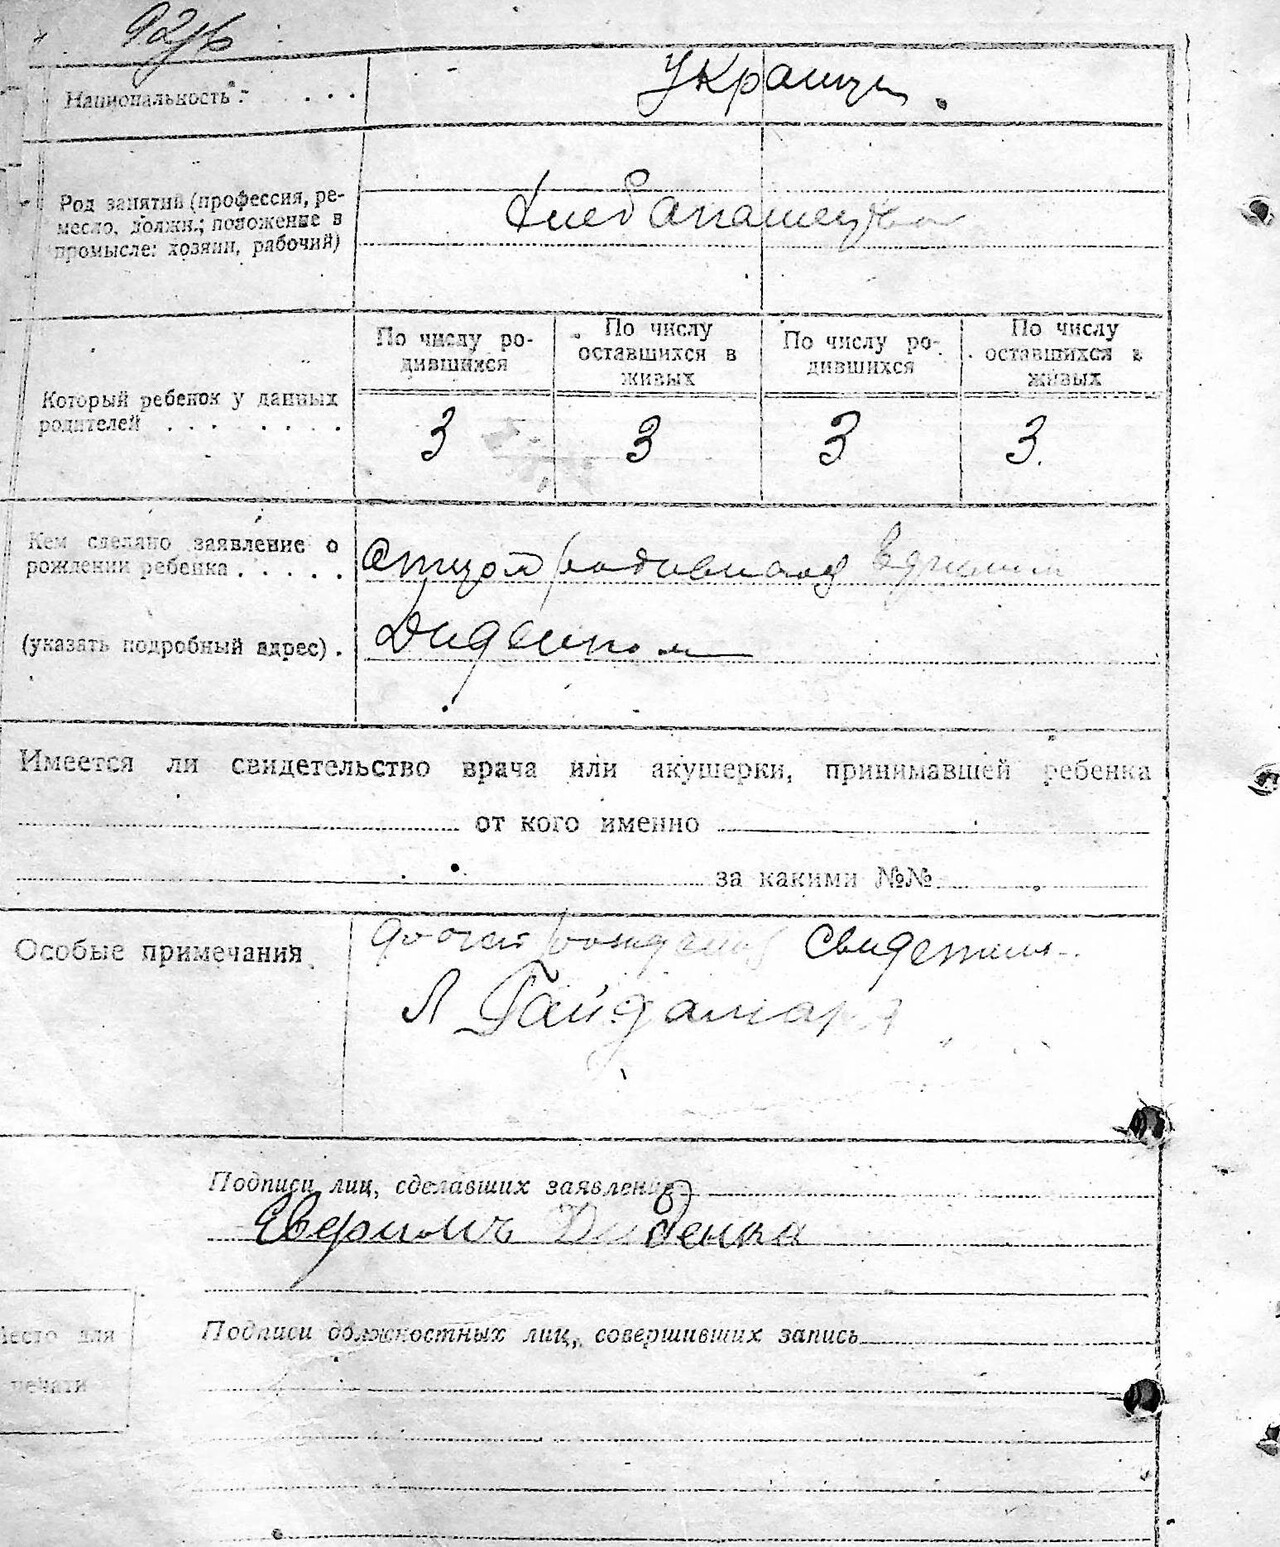 Национальность . . . .
Украинцы.
Род занятий (профессия, ре-
месло, должн.; положение в
промысле: хозяин, рабочий)
Хлебопашество
По числу ро-
дившихся
По числу
оставшихся в
живых
По числу ро-
дившихся
По числу
оставшихся в
живых
Который ребенок у данных
родителей . . . . . . . .
3 3 3 3.
Кем сделано заявление о
рождении ребенка . . . . .
отцом
(указать подробный адрес) .
Диденком
Имеется ли свидетельство врача или акушерки, принимавшей ребенка
от кого именно
за какими №№
Особые примечания
Свидетель
Л Гайдамака
Подписи лиц, сделавших заявление
Евфимъ Диденка
Место для
печати
Подписи должностных лиц, совершивших запись